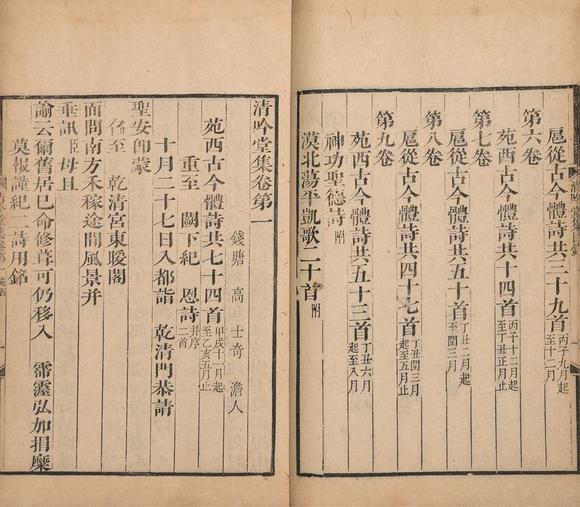 扈從古今體詩共三十九首 丙子九月起至十一月止
第六卷
苑西古今體詩共十四首 丙子十二月起至丁丑正月止
第七卷
扈從古今體詩共三十首 丁丑二月起至閏三月
第八卷
扈從古今體詩共四十七首 丁丑閏三月起至五月止
第九卷
苑西古今體詩共五十三首 丁丑六月起至八月
神功聖德詩 附
漠北蕩平凱歌二十首 附
清吟堂集卷第一
錢塘 高士奇 澹人
苑西古今體詩共七十四首 甲戌十一月起至乙亥五月止
重至 闕下紀 恩詩 并序二首
十月二十七日入都詣 乾清門恭請
聖安卽蒙
召至 乾清宮東暖閣
面問南方禾稼途間風景并
垂訊臣母且
諭云爾舊居已命修葺可仍移入 霈澤弘加捐糜
莫報謹紀二詩用銘